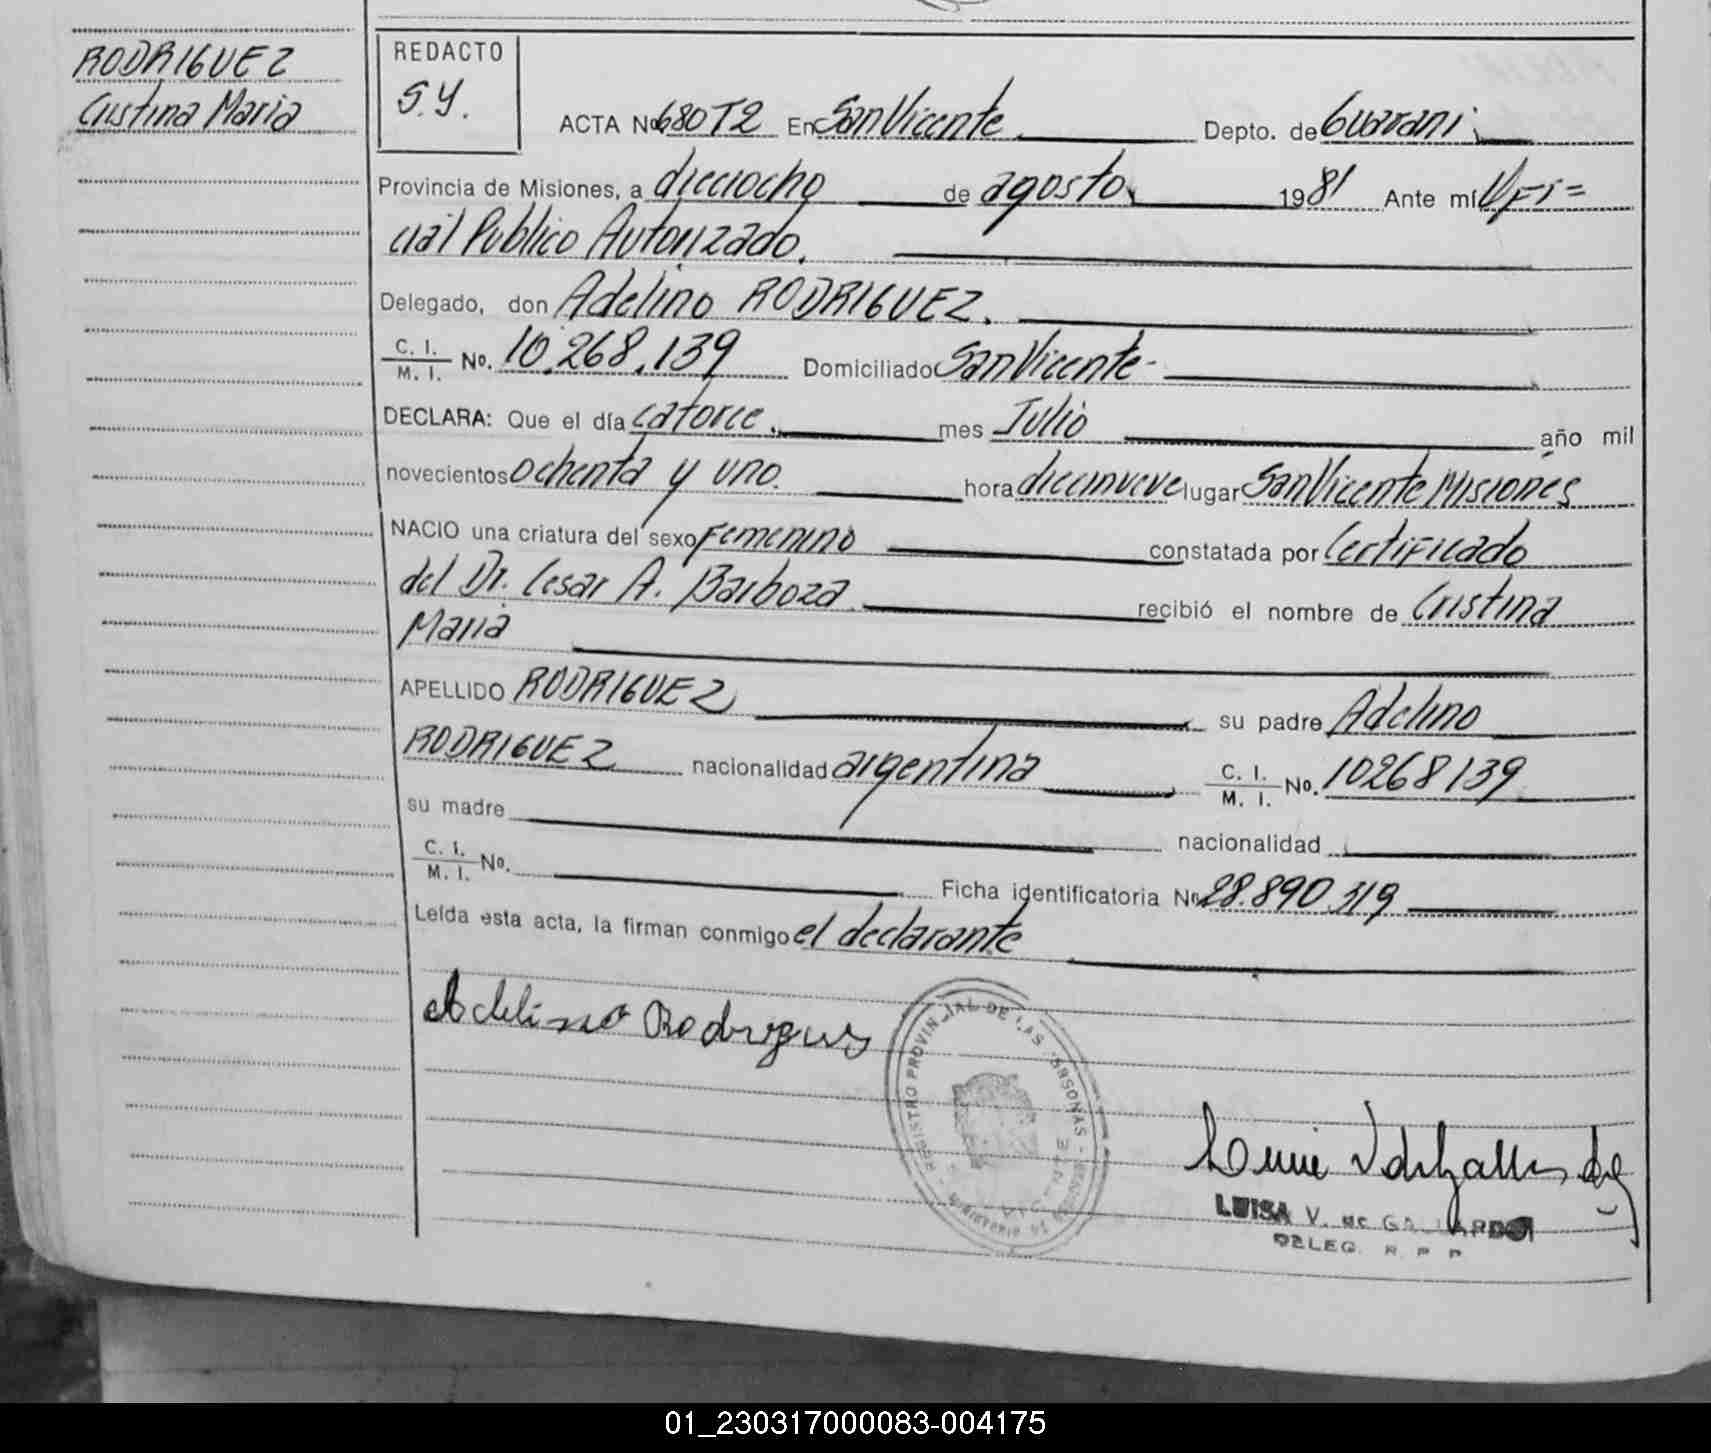 RODRIGUEZ
Cristina Maria
REDACTO
S.Y.
ACTA Nº 680T2 En San Vicente Depto. de Guarani
Provincia de Misiones, a dieciocho de agosto 1981 Ante mí Ofi=
cial Publico Autorizado.
Delegado, don Adelino RODRIGUEZ.
C. I.
M. I. No. 10.268.139 Domiciliado San Vicente-
DECLARA: Que el día catorce. mes Julio año mil
novecientos ochenta y uno. hora diecinueve lugar San Vicente Misiones
NACIO una criatura del sexo Femenino constatada por Certificado
del Dr. Cesar A. Barboza recibió el nombre de Cristina
Maria
APELLIDO RODRIGUEZ su padre Adelino
RODRIGUEZ nacionalidad argentina C. I.
M. I. No. 10268139
su madre nacionalidad
C. I.
M. I. No. Ficha identificatoria Nº 28.890.319
Leída esta acta, la firman conmigo el declarante
Adelino Rodrigues
REGISTRO PROVINCIAL DE LAS PERSONAS
LUISA V. de GALLARDO
DELEG. R. P. P.
01_230317000083-004175